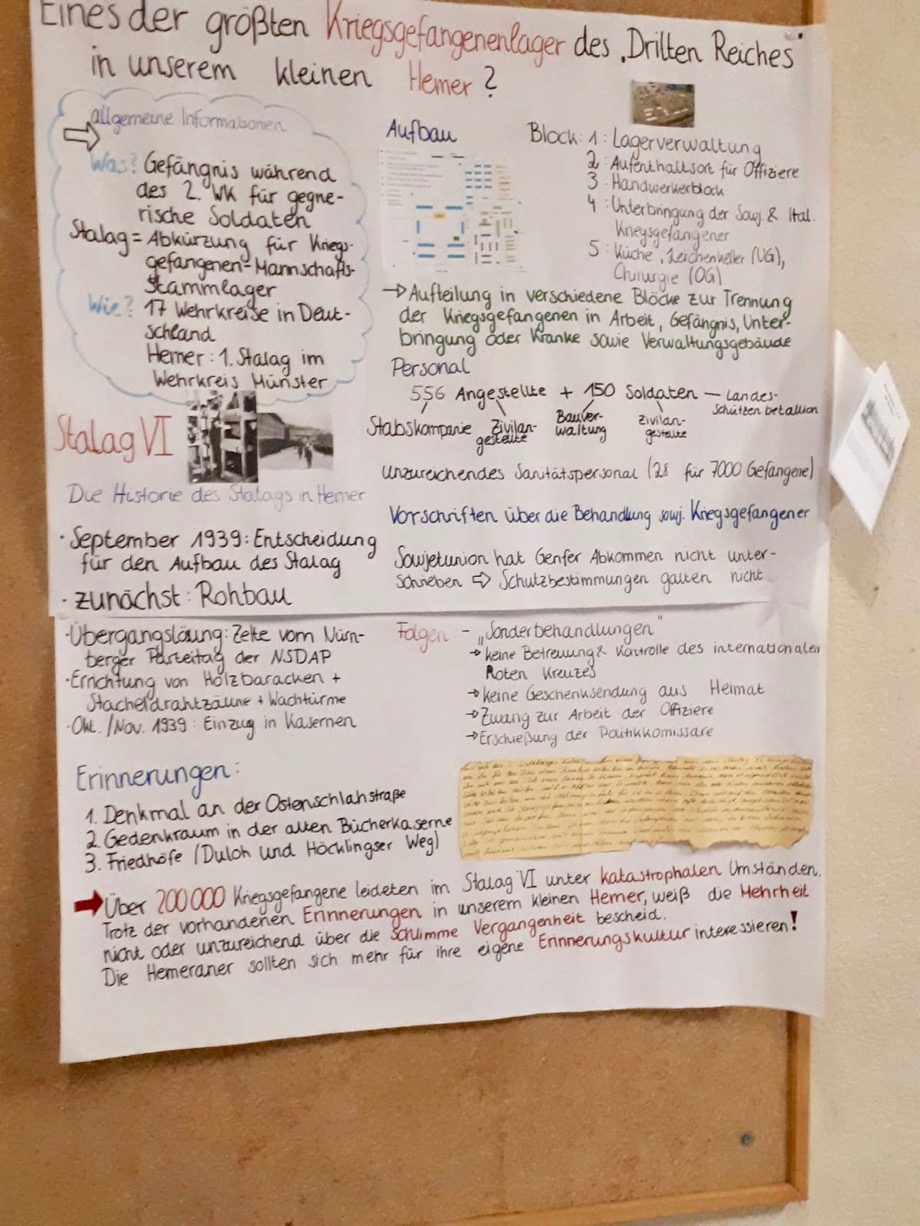 Eines der größten Kriegsgefangenenlager des „Dritten Reiches"
in unserem kleinen Hemer?
allgemeine Informationen
Was? Gefängnis während
des 2. WK für gegne-
rische Soldaten
Stalag = Abkürzung für Kriegs-
gefangenen-Mannschafts-
Stammlager
Wie? 17 Wehrkreise in Deut-
schland
Hemer: 1. Stalag im
Wehrkreis Münster
Stalag VI
Die Historie des Stalags in Hemer
· September 1939: Entscheidung
für den Aufbau des Stalag
· zunächst: Rohbau
· Übergangslöung: Zelte vom Nürn-
berger Parteitag der NSDAP
· Errichtung von Holzbaracken +
Stacheldrahtzäune + Wachtürme
· Okt./Nov. 1939: Einzug in Kasernen
Erinnerungen:
1. Denkmal an der Ostenschlahstraße
2. Gedenkraum in der alten Bücherkaserne
3. Friedhöfe (Duloh und Höcklingser Weg)
Aufbau
Block: 1: Lagerverwaltung
2: Aufenthaltsort für Offiziere
3: Handwerkerblock
4: Unterbringung der Sowj. & Ital.
Kriegsgefangener
5: Küche, Leichenkeller (UG),
Chirurgie (OG)
→ Aufteilung in verschiedene Blöcke zur Trennung
der Kriegsgefangenen in Arbeit, Gefängnis, Unter-
bringung oder Kranke sowie Verwaltungsgebäude
Personal
556 Angestellte + 150 Soldaten — Landes-
schützen betallion
Stabskompanie Zivilan-
gestellte Bauver-
waltung Zivilan-
gestellte
unzureichendes Sanitätspersonal (28 für 7000 Gefangene)
Vorschriften über die Behandlung sowj. Kriegsgefangener
Sowjetunion hat Genfer Abkommen nicht unter-
schrieben ⇨ Schutzbestimmungen galten nicht
Folgen: - „Sonderbehandlungen"
→ keine Betreuung & Kontrolle des internationalen
Roten Kreuzes
→ keine Geschenksendung aus Heimat
→ Zwang zur Arbeit der Offiziere
→ Erschießung der Politikkomissare
➡ Über 200 000 Kriegsgefangene leideten im Stalag VI unter katastrophalen Umständen.
Trotz der vorhandenen Erinnerungen in unserem kleinen Hemer, weiß die Mehrheit
nicht oder unzureichend über die schlimme Vergangenheit bescheid.
Die Hemeraner sollten sich mehr für ihre eigene Erinnerungskultur interessieren!